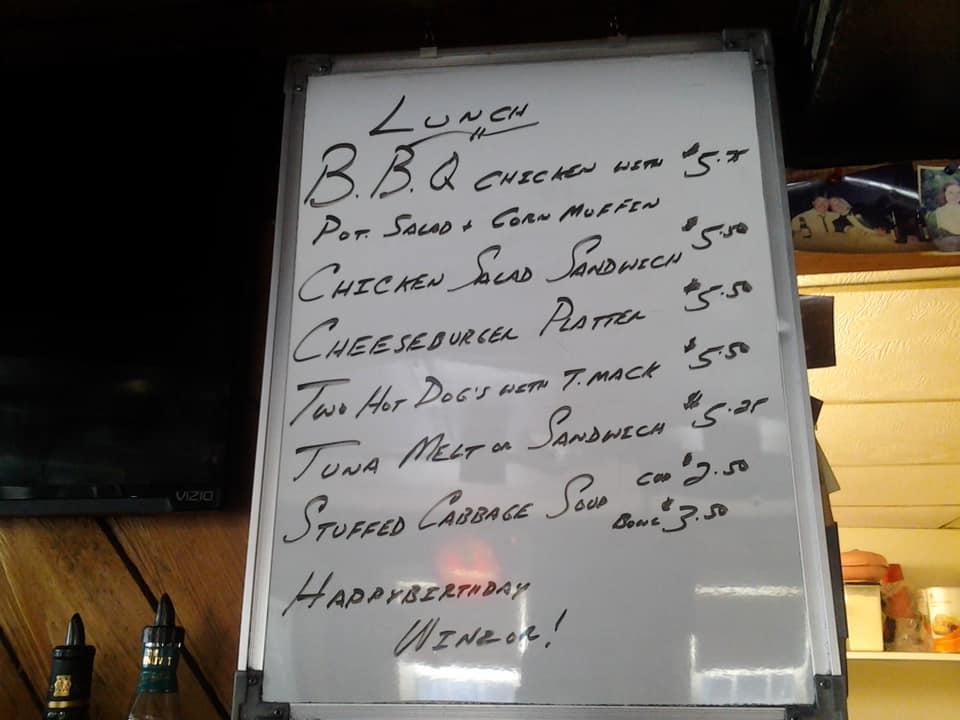 LUNCH
B.B.Q CHICKEN WITH $5.75
POT. SALAD + CORN MUFFIN
CHICKEN SALAD SANDWICH $5.50
CHEESEBURGER PLATTER $5.50
TWO HOT DOG'S WITH T.MACK $5.50
TUNA MELT OR SANDWICH $5.25
STUFFED CABBAGE SOUP CUP $2.50
BOWL $3.50
HAPPYBIRTHDAY
WINZOR!
VIZIO